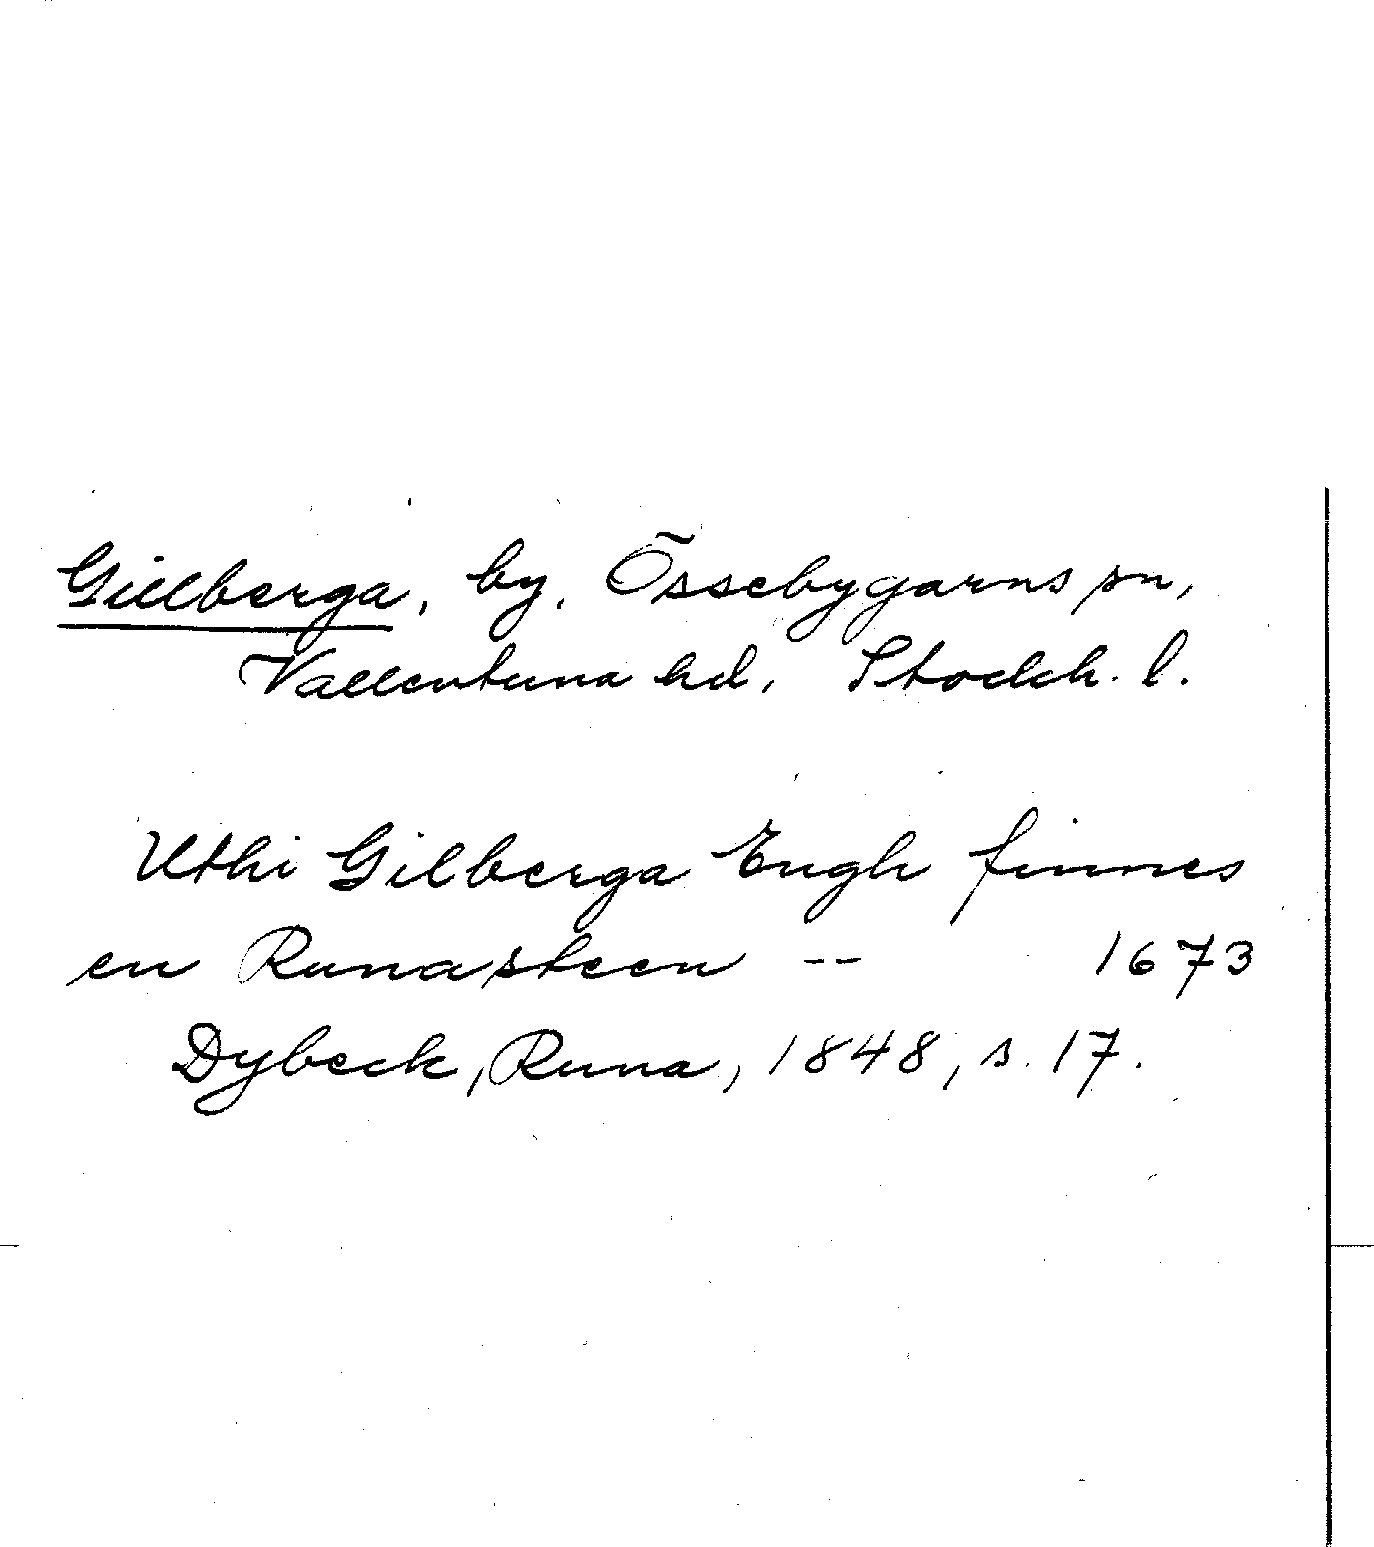 Gillberga, by, Össebygarns sn,
Vallentuna hd, Stockh. l.
Uthi Gilberga Engh finnes
en Runasteen -- 1673
Dybeck, Runa, 1848, s. 17.